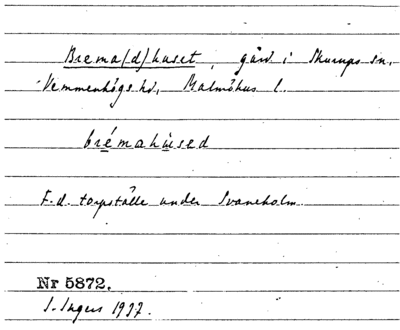 Brema(d)huset, gård i Skurups sn.
Vemmenhögs hd, Malmöhus l.
brémahùsed
F.d. torpställe under Svaneholm.
Nr 5872.
I. Ingers 1937.